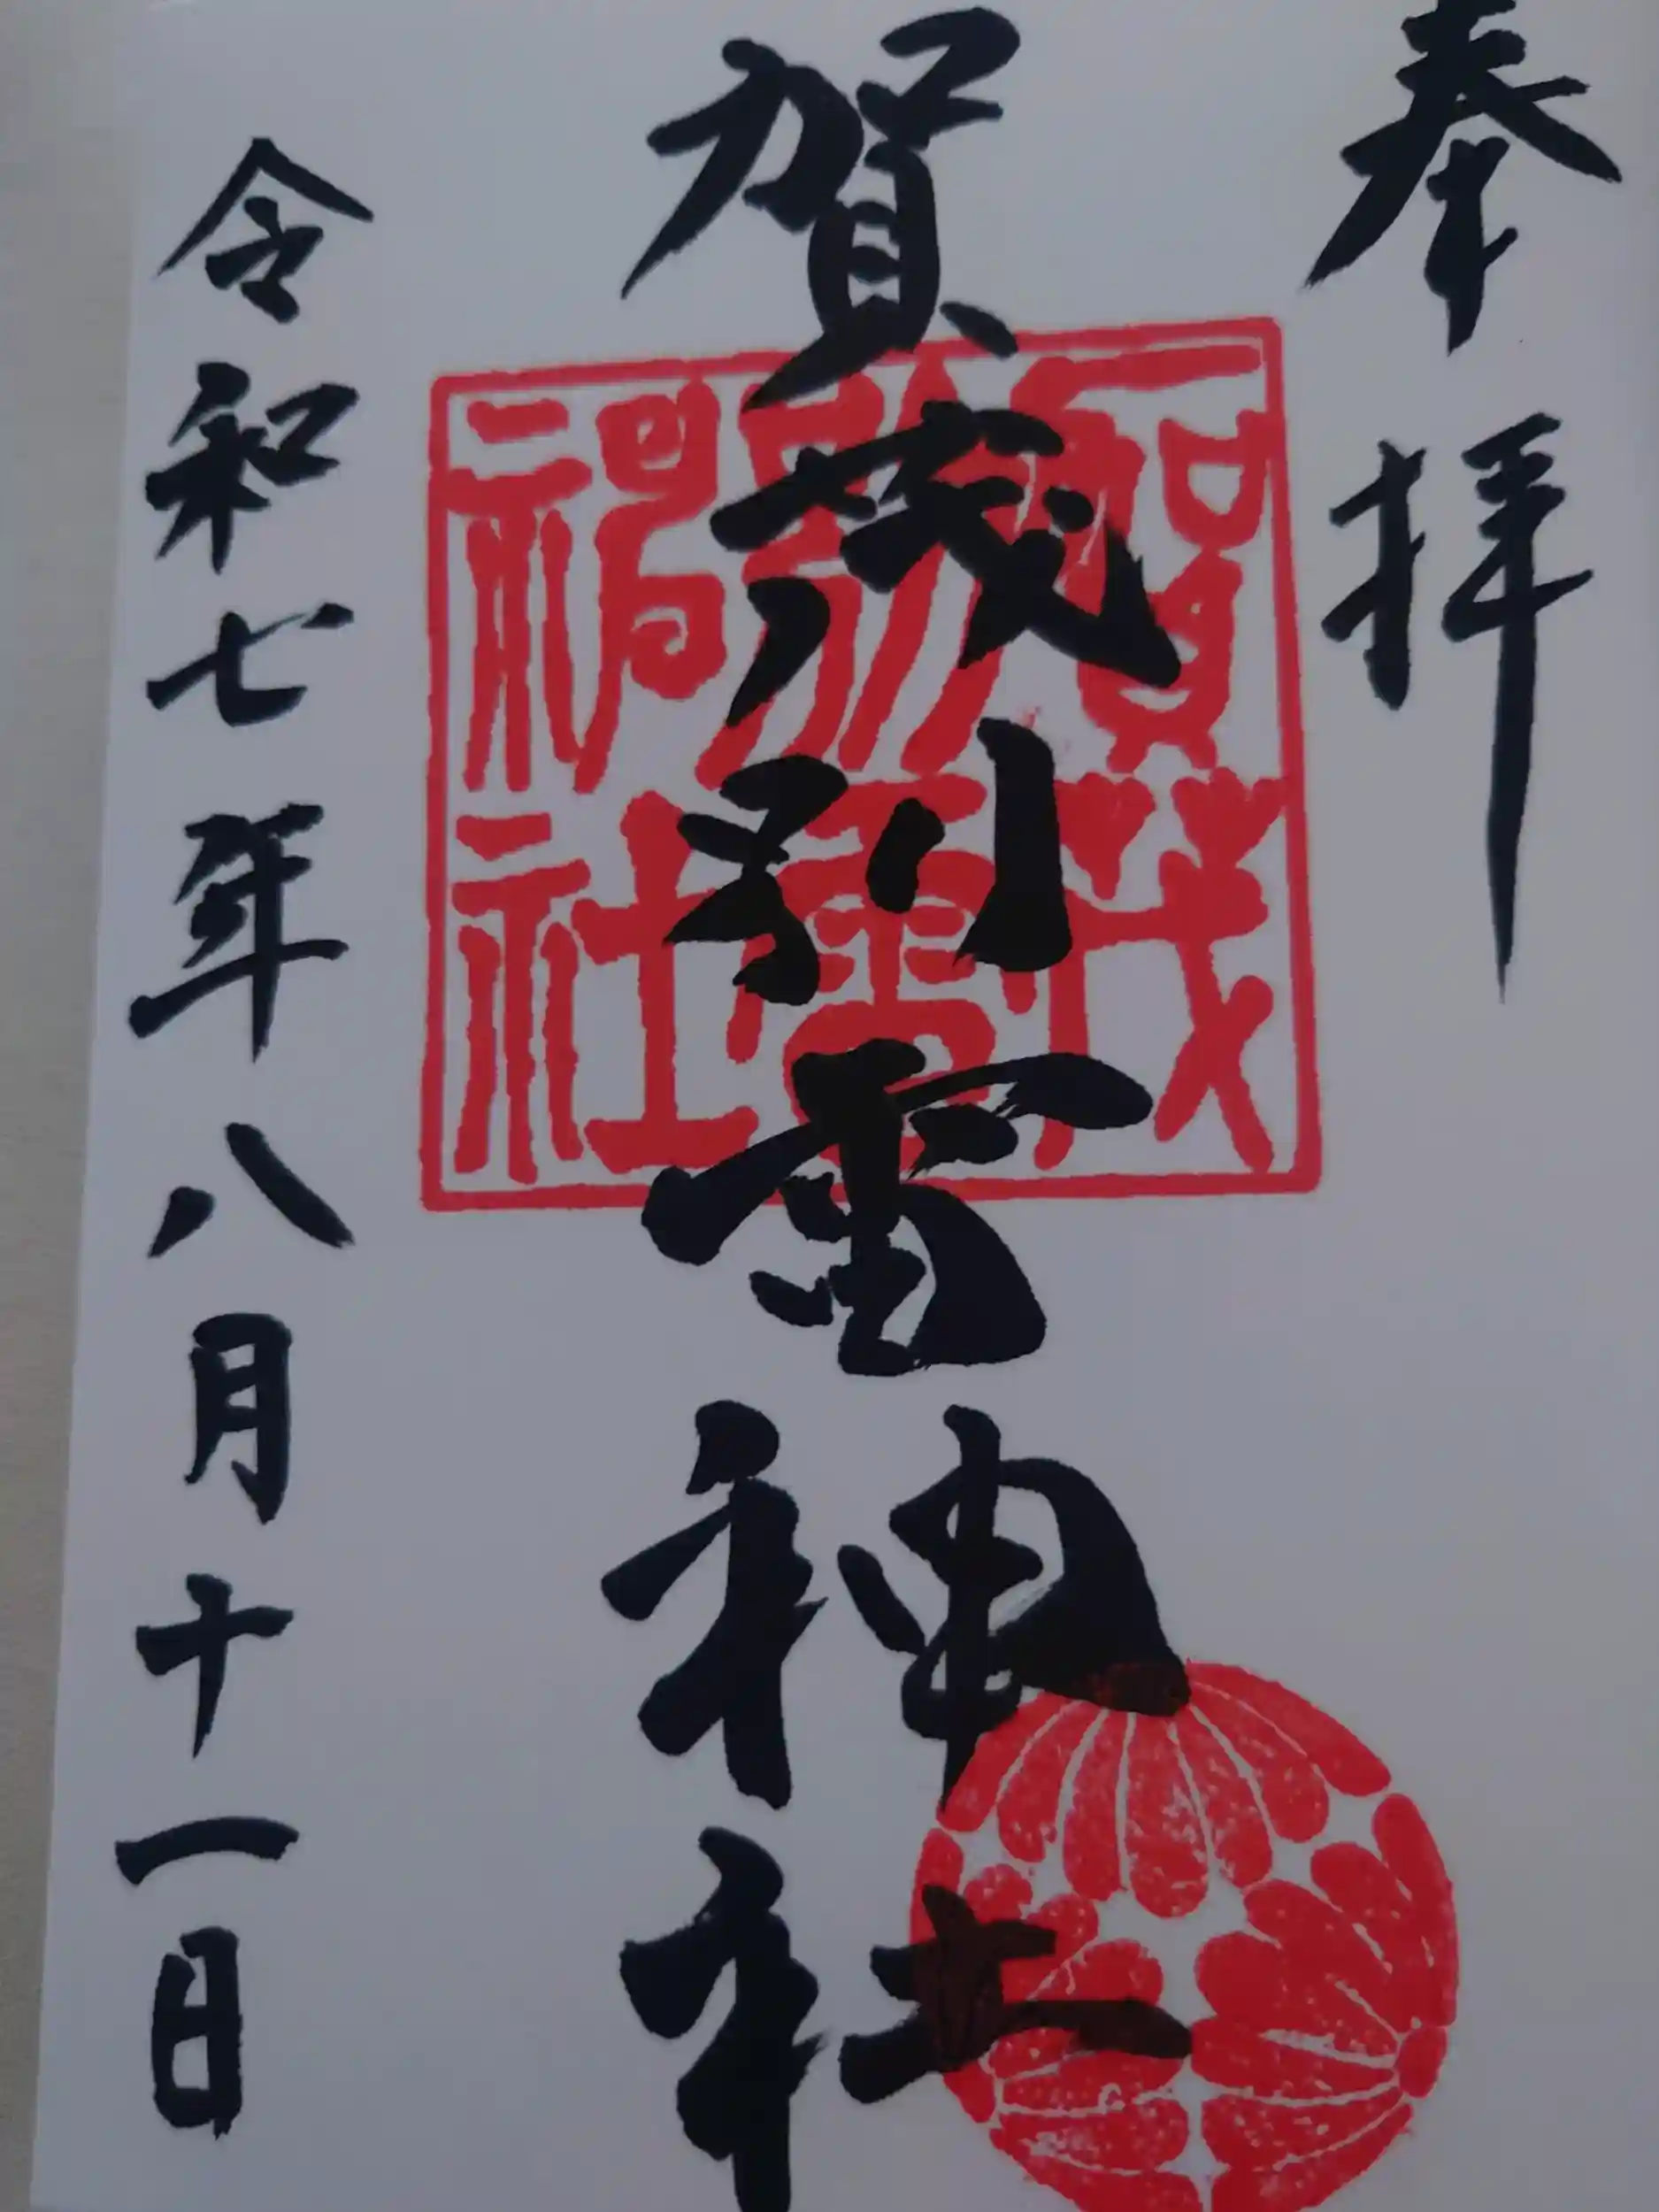 奉拝
賀茂別雷神社
賀茂別雷神社
令和七年八月十一日